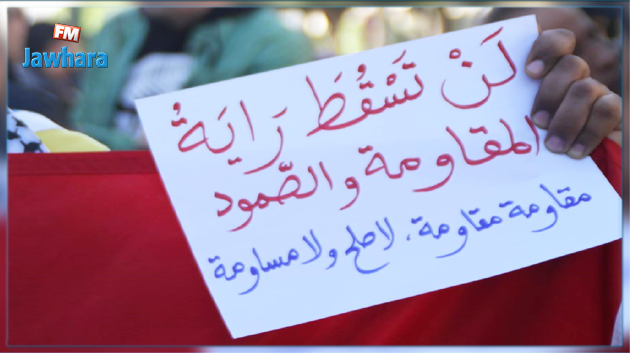 FM
Jawhara
لَنْ تَسْقُطَ رَايَةُ
المقاومة والصّمود
مقاومة مقاومة، لا صلح ولا مساومة